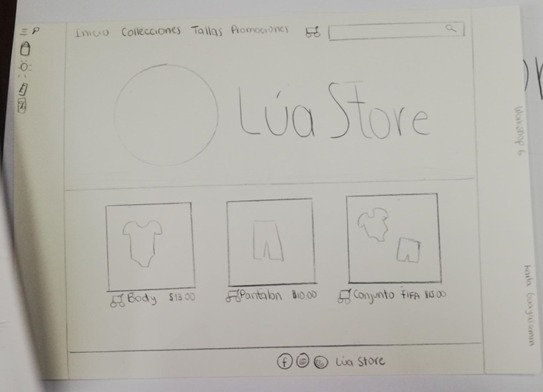 Inicio Collecciones Tallas Promociones
Lúa Store
Body $13.00
Pantalón $10.00
Conjunto FIFA
Lúa Store
Workshop 6